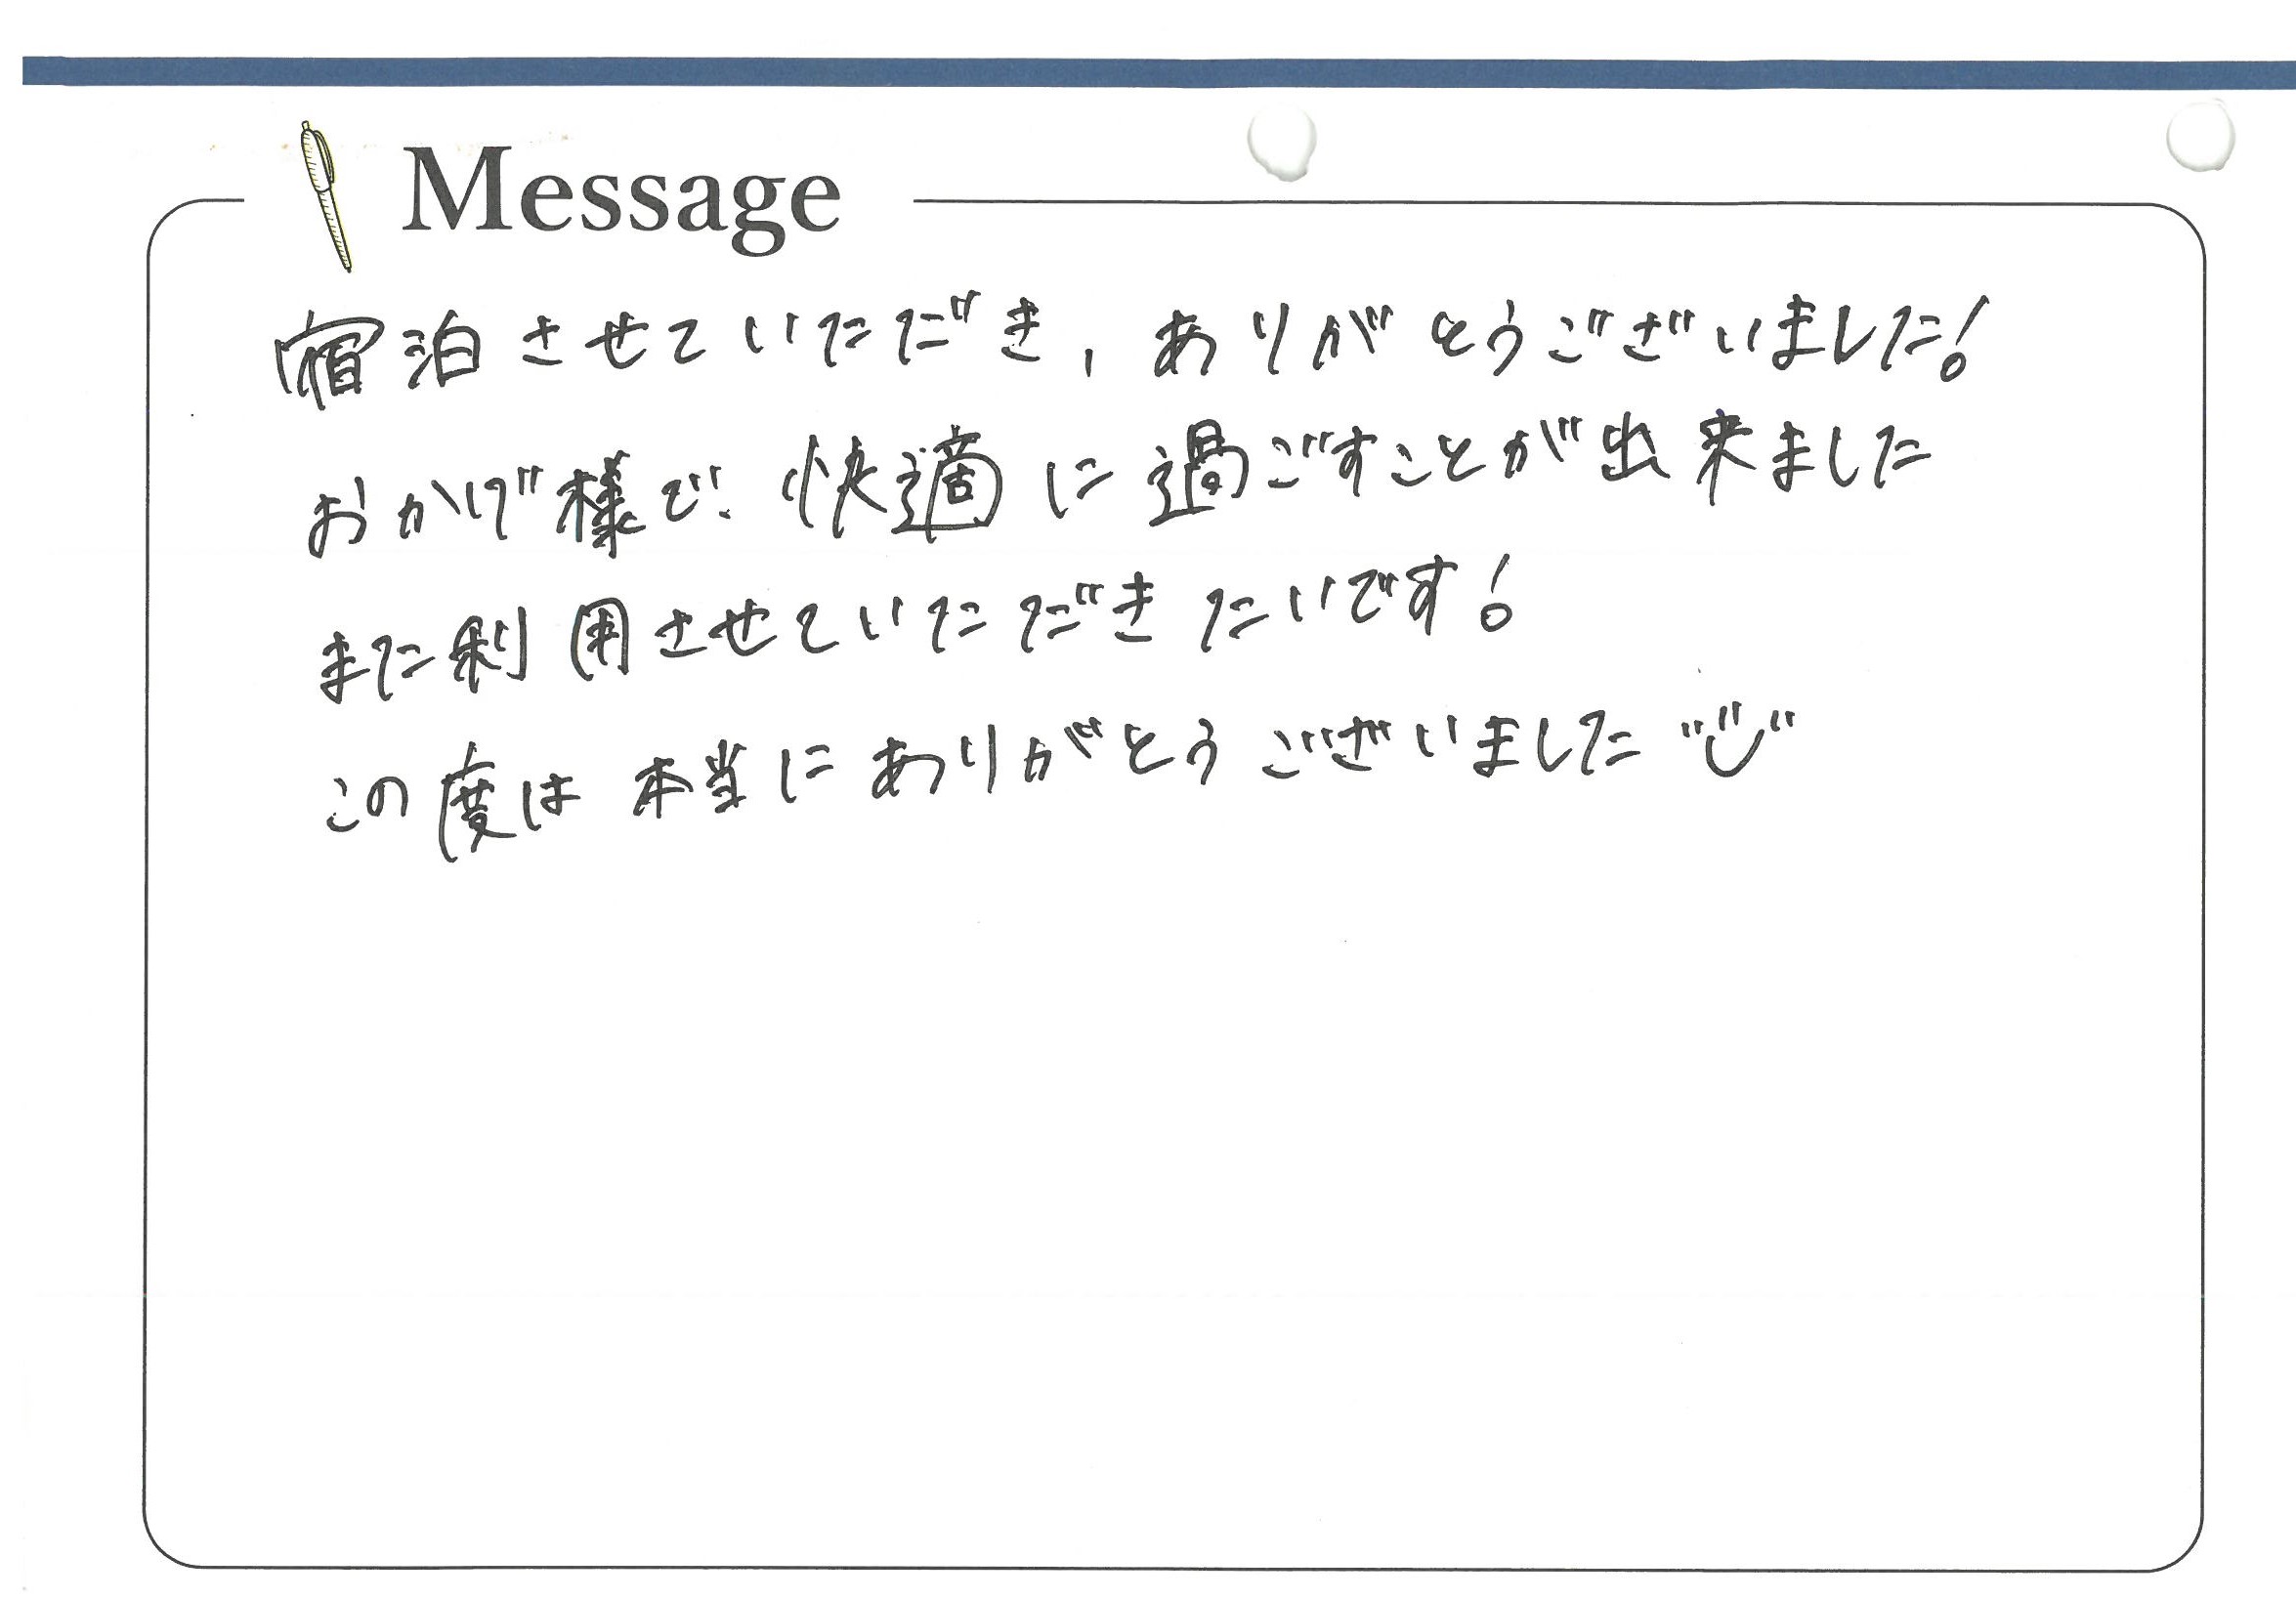 Message
宿泊させていただき、ありがとうございました!
おかげ様で、快適に過ごすことが出来ました
また利用させていただきたいです!
この度は本当にありがとうございました